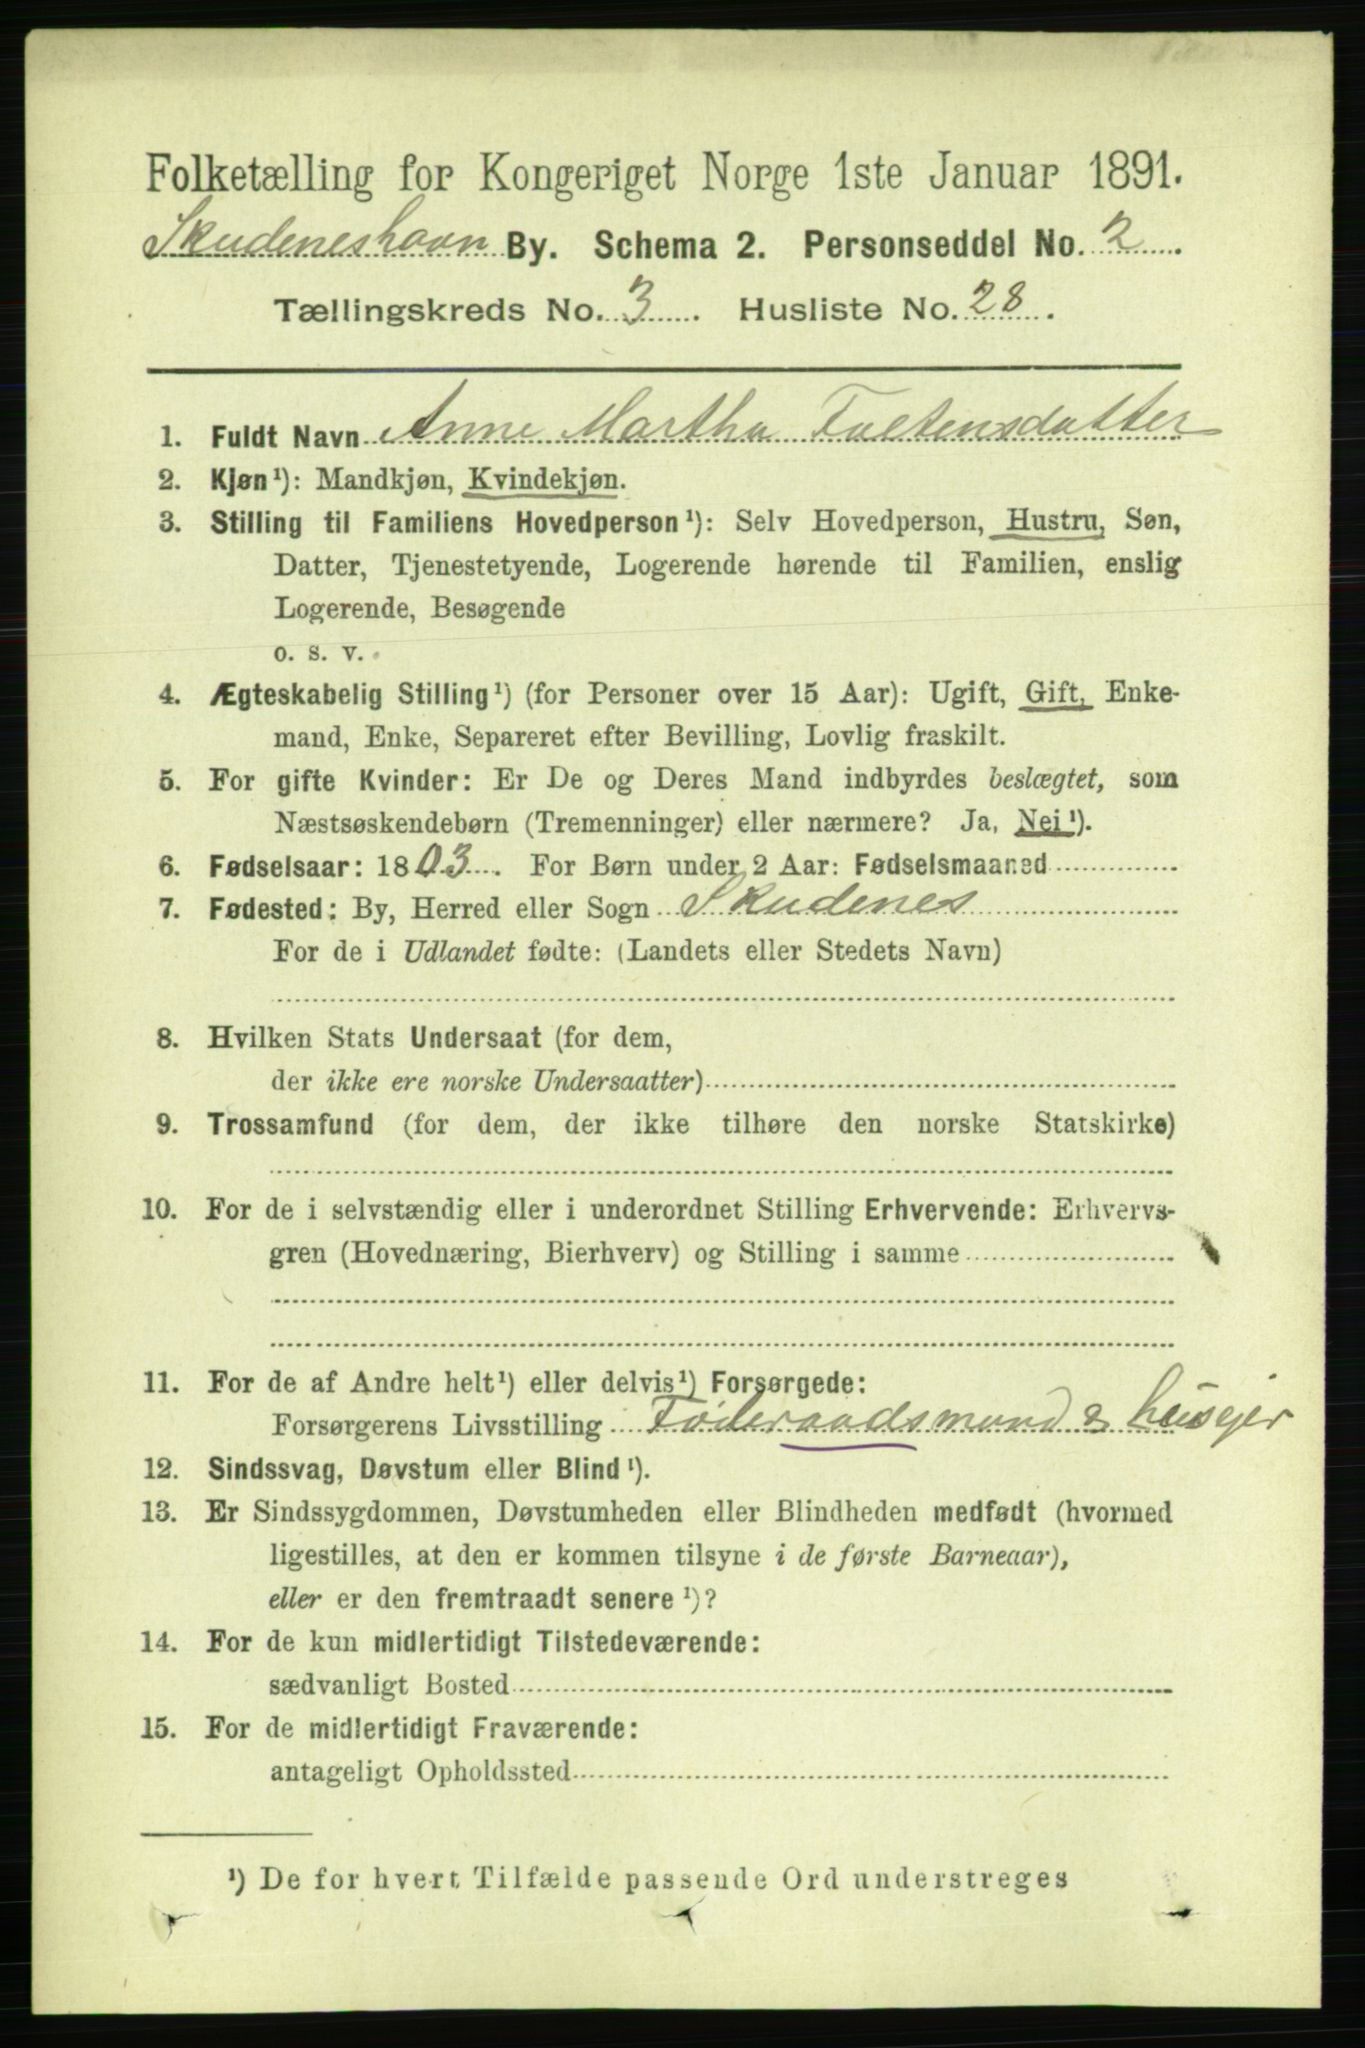 Folketælling for Kongeriget Norge 1ste Januar 1891.
Skudeneshavn By. Schema 2. Personseddel No. 2.
Tællingskreds No. 3. Husliste No. 28.
1. Fuldt Navn Anne Martha Faltensdatter
2. Kjøn¹): Mandkjøn, Kvindekjøn.
3. Stilling til Familiens Hovedperson¹): Selv Hovedperson, Hustru, Søn,
Datter, Tjenestetyende, Logerende hørende til Familien, enslig
Logerende, Besøgende
o. s. v.
4. Ægteskabelig Stilling¹) (for Personer over 15 Aar): Ugift, Gift, Enke-
mand, Enke, Separeret efter Bevilling, Lovlig fraskilt.
5. For gifte Kvinder: Er De og Deres Mand indbyrdes beslægtet, som
Næstsøskendebørn (Tremenninger) eller nærmere? Ja, Nei¹).
6. Fødselsaar: 1803. For Børn under 2 Aar: Fødselsmaaned
7. Fødested: By, Herred eller Sogn Skudenes
For de i Udlandet fødte: (Landets eller Stedets Navn)
8. Hvilken Stats Undersaat (for dem,
der ikke ere norske Undersaatter)
9. Trossamfund (for dem, der ikke tilhøre den norske Statskirke)
10. For de i selvstændig eller i underordnet Stilling Erhvervende: Erhvervs-
gren (Hovednæring, Bierhverv) og Stilling i samme
11. For de af Andre helt¹) eller delvis¹) Forsørgede:
Forsørgerens Livsstilling Føderaadsmand & husejer
12. Sindssvag, Døvstum eller Blind¹).
13. Er Sindssygdommen, Døvstumheden eller Blindheden medfødt (hvormed
ligestilles, at den er kommen tilsyne i de første Barneaar),
eller er den fremtraadt senere¹)?
14. For de kun midlertidigt Tilstedeværende:
sædvanligt Bosted
15. For de midlertidigt Fraværende:
antageligt Opholdssted
¹) De for hvert Tilfælde passende Ord understreges